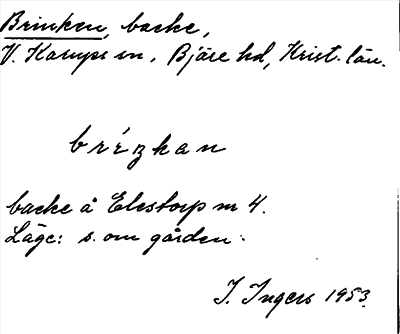 Brinken, backe,
V. Karups sn, Bjäre hd, Krist. län.
backe å Elestorp nr 4.
Läge: s. om gården.
I. Ingers 1953.